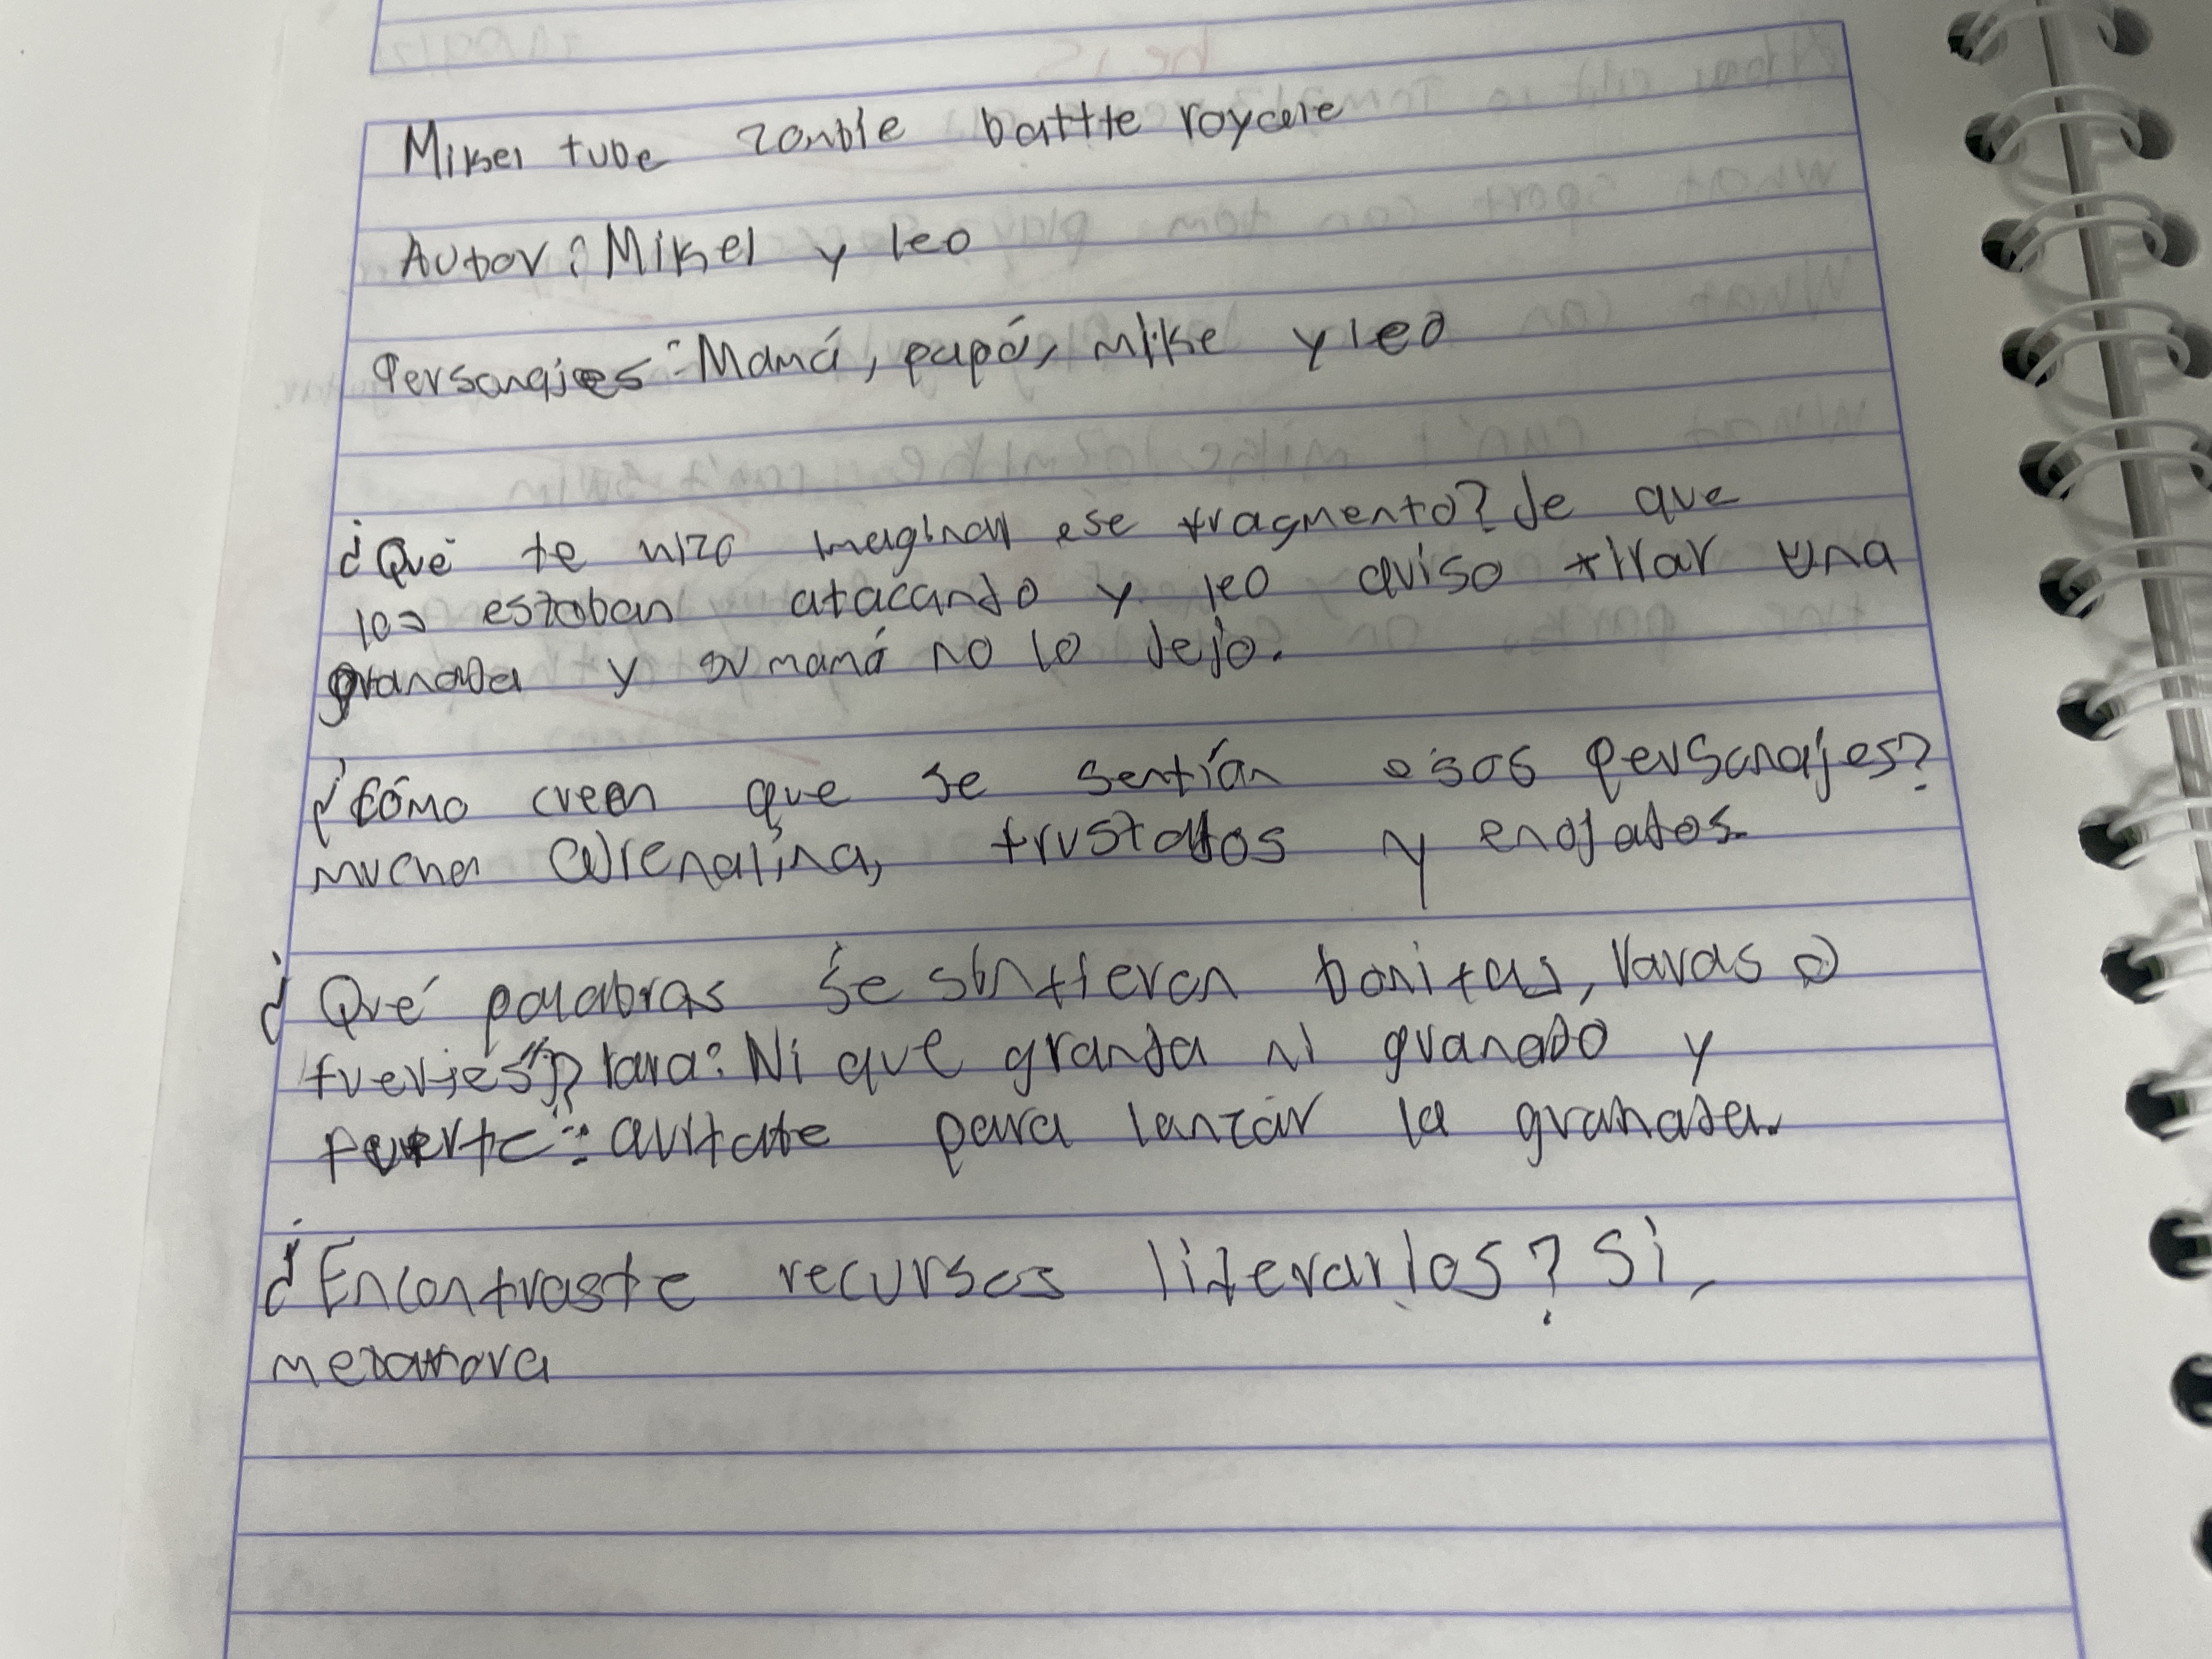 Mikel tube zonbie battle royale
Autor: Mikel y leo
Personajes: Mamá, papá, mike y leo
¿Qué te hizo imaginar ese fragmento? de que
los estaban atacando y leo aviso tirar una
granada y su mamá no lo dejo.
¿Cómo creen que se sentían esos personajes?
mucha adrenalina, frustados y enojados.
¿Qué palabras se sintieron bonitas, raras o
fuertes? rara: Ni que granda ni granado y
fuerte: para lanzar la granada.
¿Encontraste recursos literarios? Si,
metafora